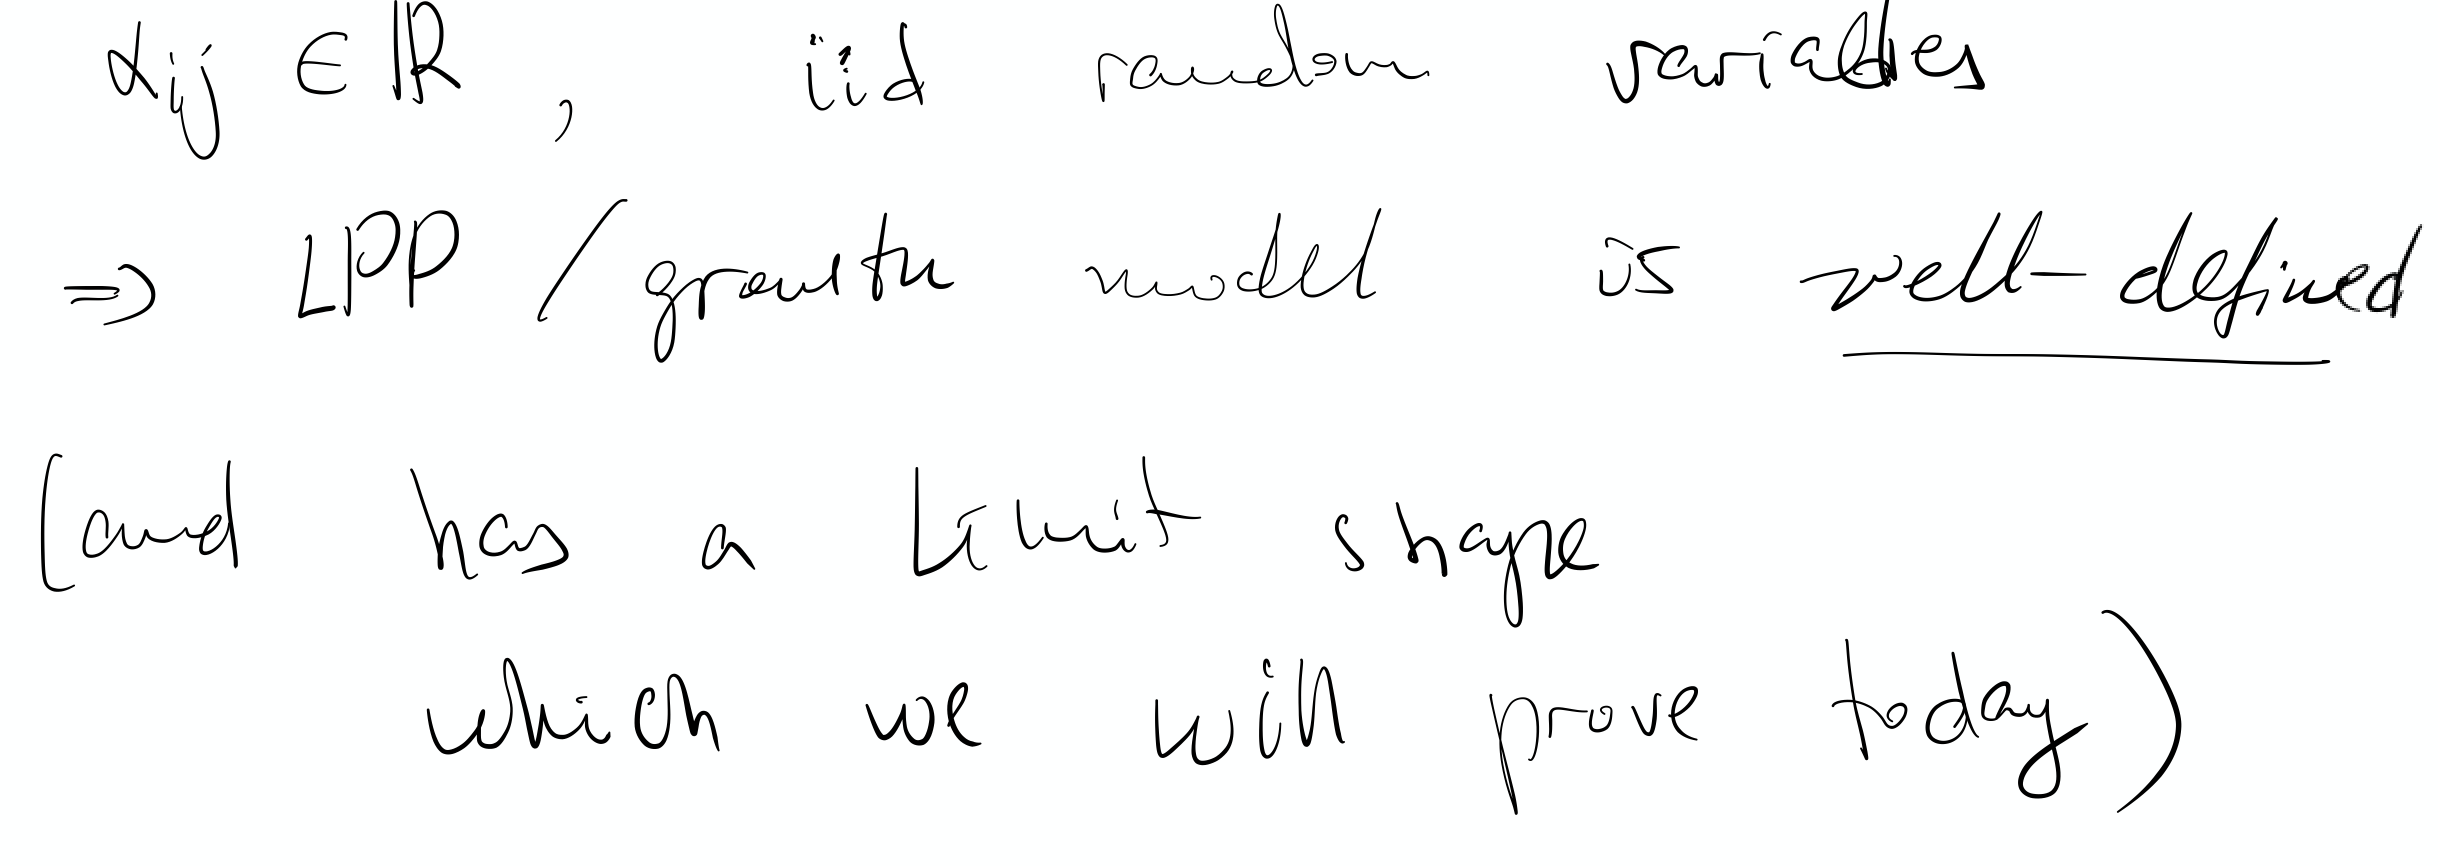 αij ∈ ℝ, iid random variables
⇒ LPP / growth model is well-defined
(and has a limit shape
which we will prove today)